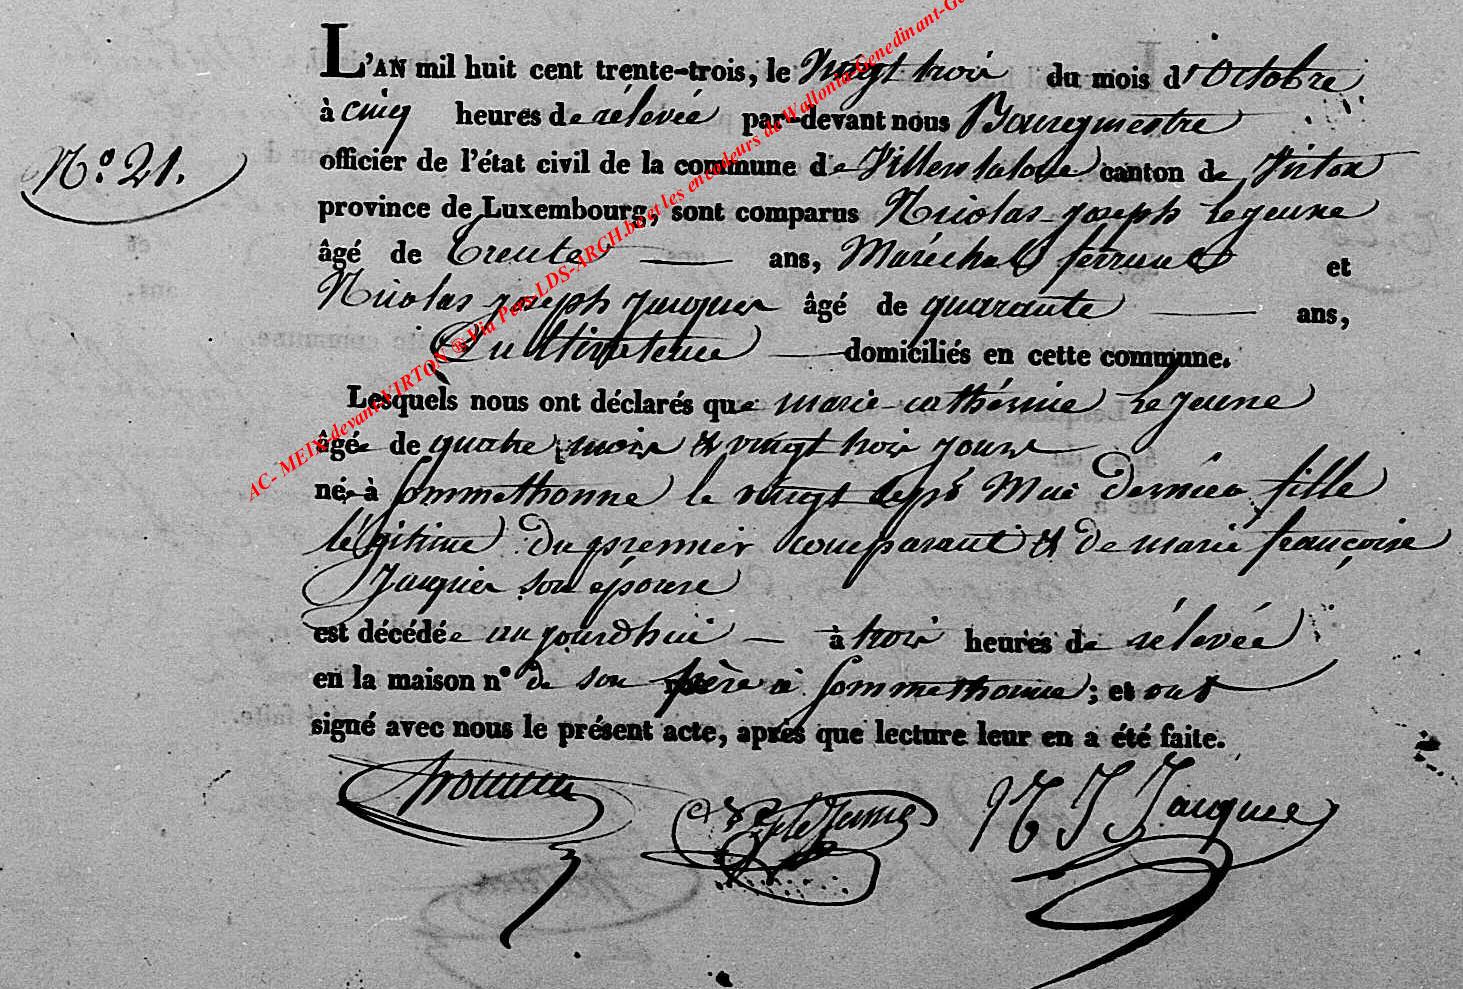 L'AN mil huit cent trente-trois, le vingt trois du mois d'Octobre
à cinq heures de rélevée par-devant nous Bourgmestre
N.° 21.
officier de l'état civil de la commune de Villers laloue canton de Virton
province de Luxembourg, sont comparus Nicolas joseph Lejeune
âgé de trente ans, Maréchal ferrant et
Nicolas joseph jacques âgé de quarante ans,
Cultivateur domiciliés en cette commune.
Lesquels nous ont déclarés que marie cathérine Lejeune
âgée de quatre mois & vingt trois jours
née à Sommethonne le vingt sept Mai dernier fille
légitime du premier comparant & de marie françoise
Jacquier son épouse
est décédée aujourdhui à trois heures de rélevée
en la maison n° de son père à Sommethonne; et ont
signé avec nous le présent acte, après que lecture leur en a été faite.
Lejeune N J Jacques
AC- MEIX-devant-VIRTON ® Via Pers-LDS-ARCH.be et les encodeurs de Wallonia-Genedinant-Ge